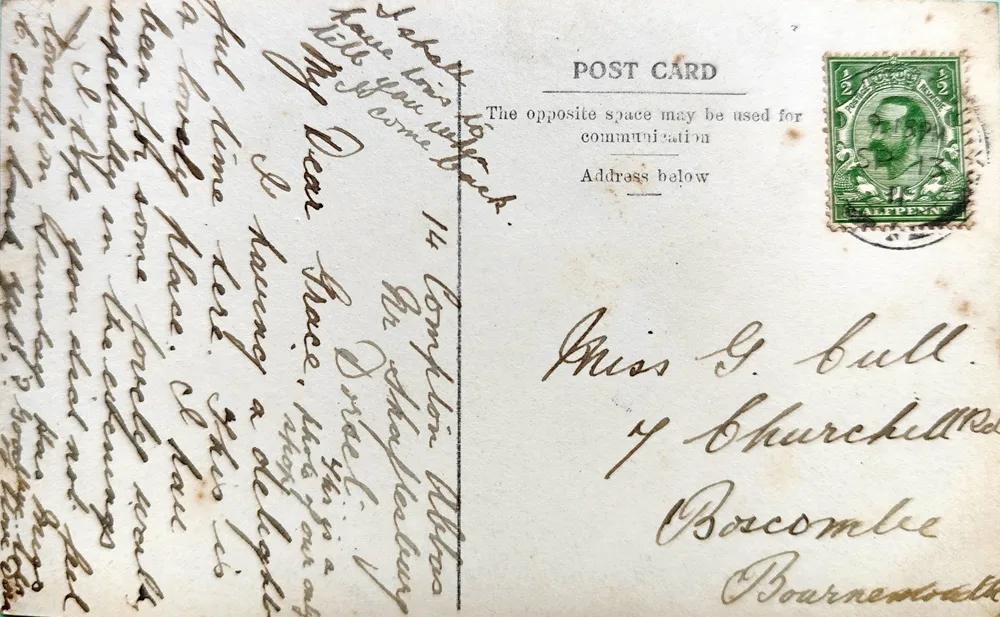 POST CARD
The opposite space may be used for
communication
Address below
½ ½
HALFPENNY
SP 13
11
Miss G. Cull.
7 Churchill Rd
Boscombe
Bournemouth
14 Compton Abbas
Nr Shaftesbury
Dorset
My Dear Grace,
This is a
photo of our only
shop
I having a delight
ful time here. This is
a lovely place. I have
been for some lovely walks
especially in the evenings
I hope you did not feel
lonely on Sunday. Has
to come back yet?
I shall
have lots to
tell you when
I come back.